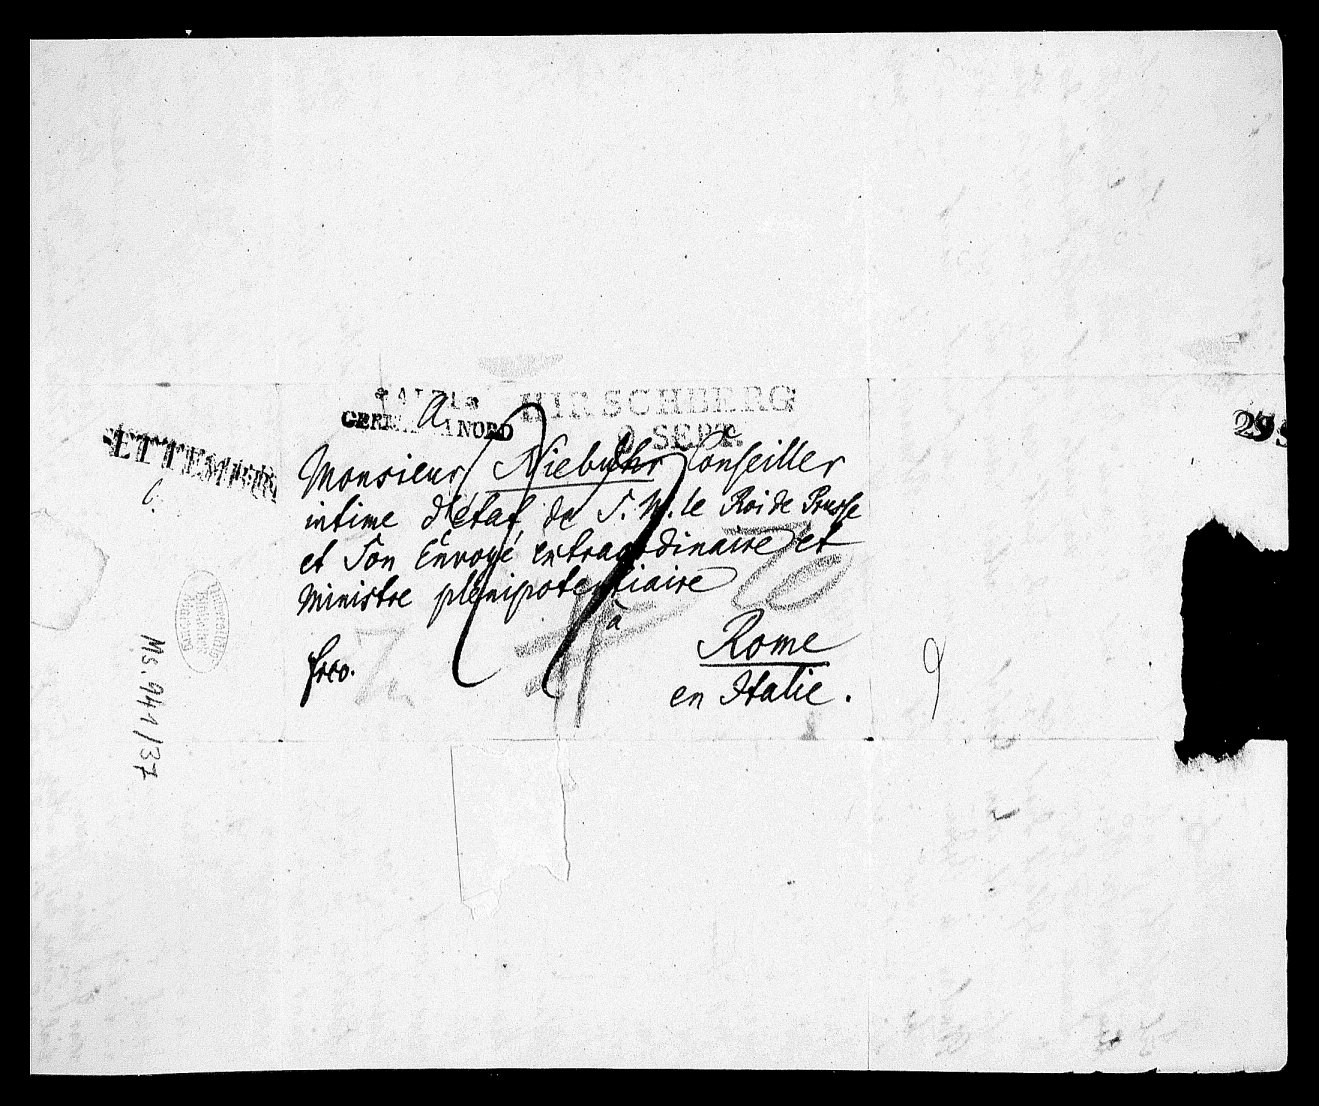 HIRSCHBERG
9 SEPT.
A
NORD
SETTEMBRE
29 S
Monsieur Niebuhr Conseiller
intime d'état de S. M. le Roi de Prusse
et Son Envoyé extraordinaire et
Ministre plénipotentiaire
à
Rome
en Italie.
frco.
70
Ms. 941/37